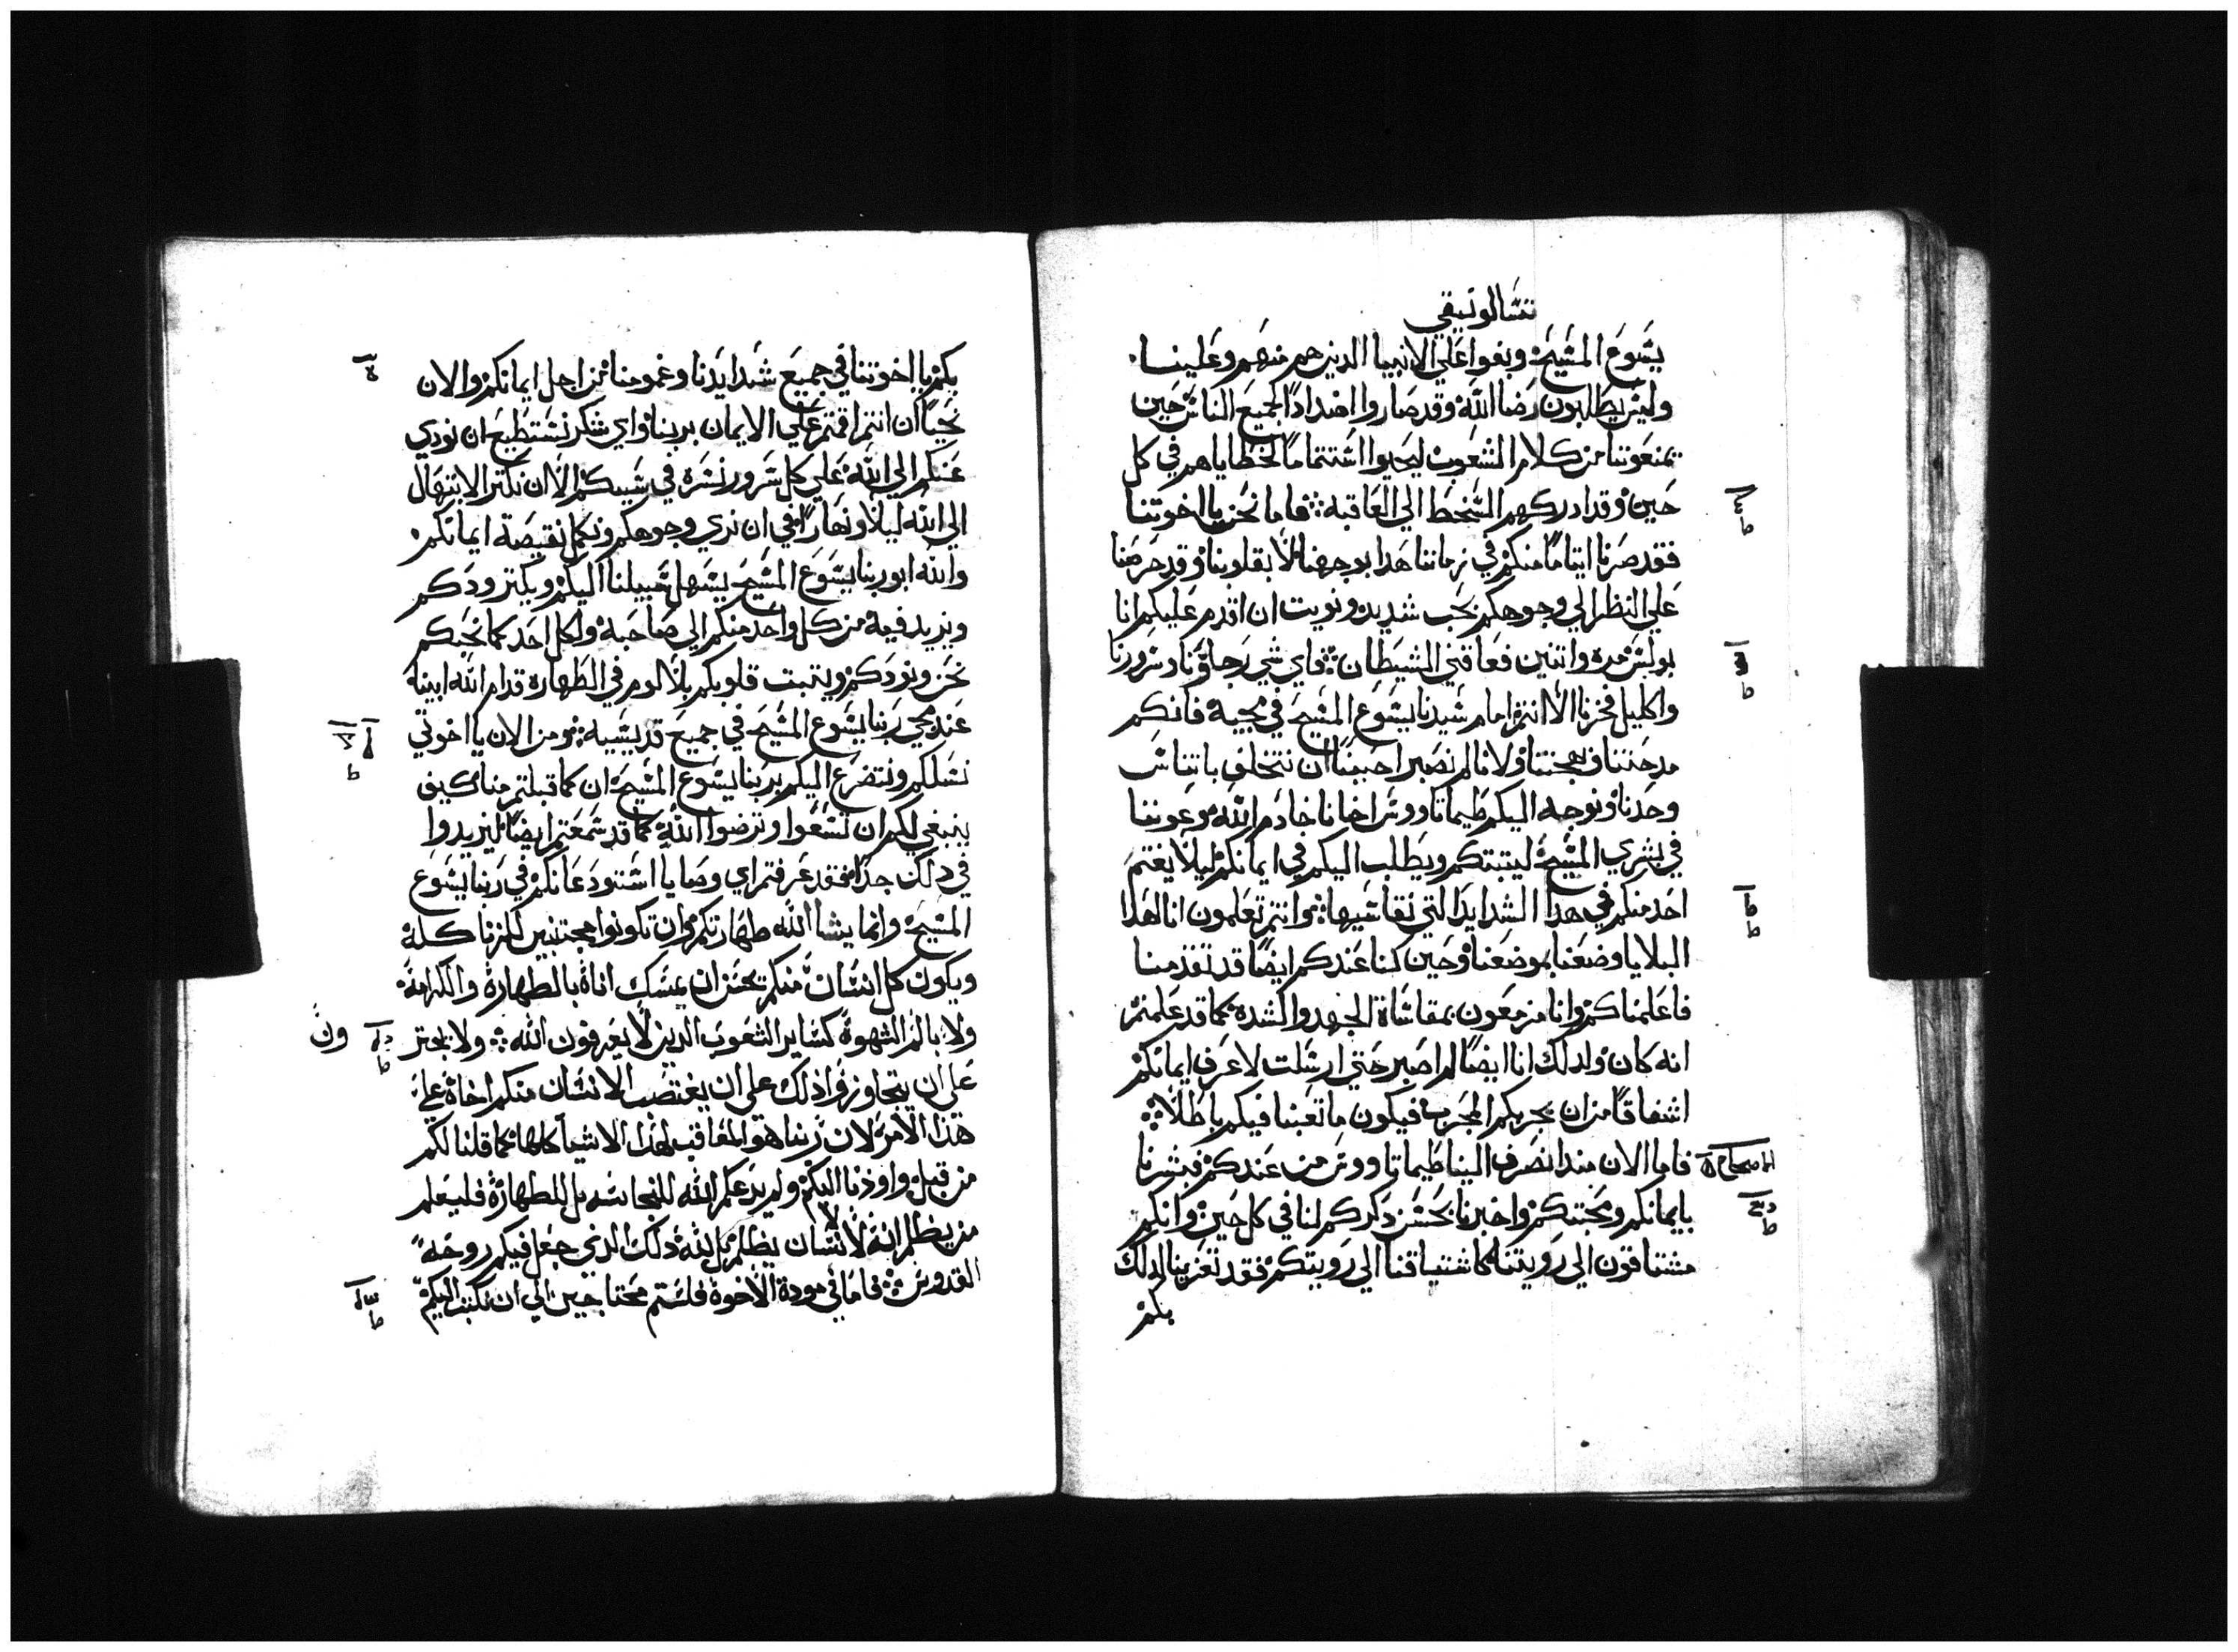 تسالونيقي
يشوع المشيح وبغوا علي الانبيا الدين هم منهم وعلينا
وليس يطلبون رضا الله وقد صاروا اضدادًا لجميع الناس حين
يمنعوننا من كلام الشعوب ليحيوا اشتتمامًا لخطاياهم في كل
حين وقد ادركهم السخط الي العاقبة فاما نحن يا اخوتنا
فقد صرنا ايتامًا منكم في زماننا هدا بوجهنا لا بقلوبنا وقد حرصنا
علي النظر الي وجوهكم بحب شديد ونويت ان اقدم عليكم انا
بولس مره واتنين فعاقني الشيطان فاي شي رجاونا وسرورنا
واكليل فخرنا الا انتم امام سيدنا يشوع المشيح في مجيه فانكم
مدحتنا وبهجتنا ولانا لم نصبر احببنا ان نتخلف باتناس
وحدنا ونوجه اليكم طيماتاووس اخانا خادم الله وعوننا
في بشري المسيح ليتبتكم ويطلب اليكم في ايمانكم ليلا يغتم
احد منكم في هدا الشدايد التي نقاسيها وانتم تعلمون انا لهدا
البلايا وضعنا بموضعنا وحين كنا عندكم ايضًا قد تقدمنا
فاعلمناكم وانا مزمعون بمقاساة الجهد والشده كما قد علمتم
انه كان ولدلك انا ايضًا لم اصبر حتي ارسلت لاعرف ايمانكم
اشفاقًا من ان يجربكم المجرب فيكون ما تعبنا فيكم باطلاً
الاصحاح
فاما الان مند انصرف الينا طيماتاووس من عندكم فبشرنا
بايمانكم ومحبتكم واخبرنا بحسن دكركم لنا في كل حين وانكم
مشتاقون الي رويتنا كاشتياقنا الي رويتكم فقد تعزينا لدلك
بكم
بكم يا اخوتنا في جميع شدايدنا وغمومنا من اجل ايمانكم والان
نحيا ان انتم اقمتم علي الايمان بربنا واي شكر نستطيع ان نودي
عنكم الي الله علي كل سرور نسره في سببكم الا ان نكتر الابتهال
الي الله ليلاً ونهارًا في ان نري وجوهكم ونكمل نقيصة ايمانكم
والله ابو ربنا يشوع المشيح يسهل سبيلنا اليكم ويكتر ودكم
ويزيد فيه من كل واحد منكم الي صاحبه ولكل احد كما نحبكم
نحن ونودكم ويتبت قلوبكم بلا لوم في الطهاره قدام الله ابينا
عند مجي ربنا يشوع المشيح في جميع قديسيه ومن الان يا اخوتي
نسلكم ونتضرع اليكم بربنا يشوع المشيح ان كما قبلتم منا كيف
ينبغي لكم ان تسعوا وترضوا الله كما قد سمعتم ايضًا ليزيدوا
في دلك جدًا فقد عرفتم اي وصايا استودعانكم في ربنا يشوع
المشيح وانما يشا الله طهارتكم وان تكونوا مجتنبين لكل زنا كله
ويكون كل انسان منكم يحسن ان يمسك اناة بالطهارة والكرامة
ولا بالم الشهوة كساير الشعوب الدين لا يعرفون الله ولا يجتر
ون
علي ان يتجاوزوا ذلك علي ان يغتصب الانسان منكم اخاة علي
هذا الامر لان ربنا هو المعاقب لهذا الاشيا كلها كما قلنا لكم
من قبل واوذنا اليكم ولم يدعكم الله للنجاسه بل للطهارة فليعلم
من يظلم انه لا انسان يظلم بل الله دلك الدي جعل فيكم روحه
القدوس فاما في مودة الاخوة فلستم محتاجين الي ان نكتب اليكم